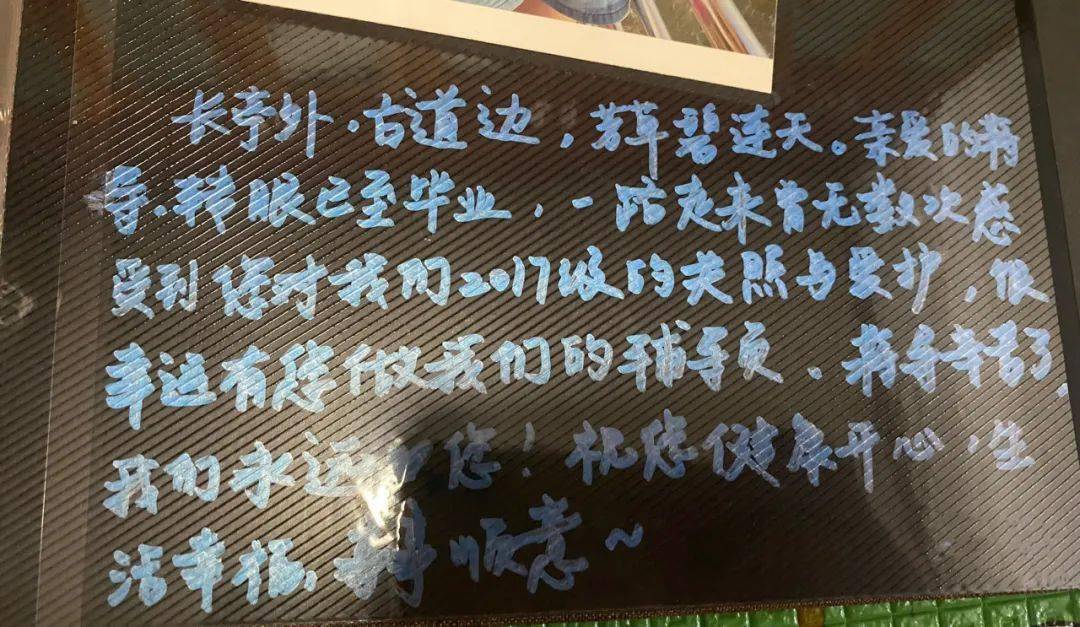 长亭外，古道边，芳草碧连天。亲爱的蒋
导，转眼已至毕业，一路走来曾无数次感
受到您对我们2017级的关照与爱护，很
幸运有您做我们的辅导员，蒋导辛苦了，
我们永远爱您！祝您健康开心，生
活幸福，顺意~